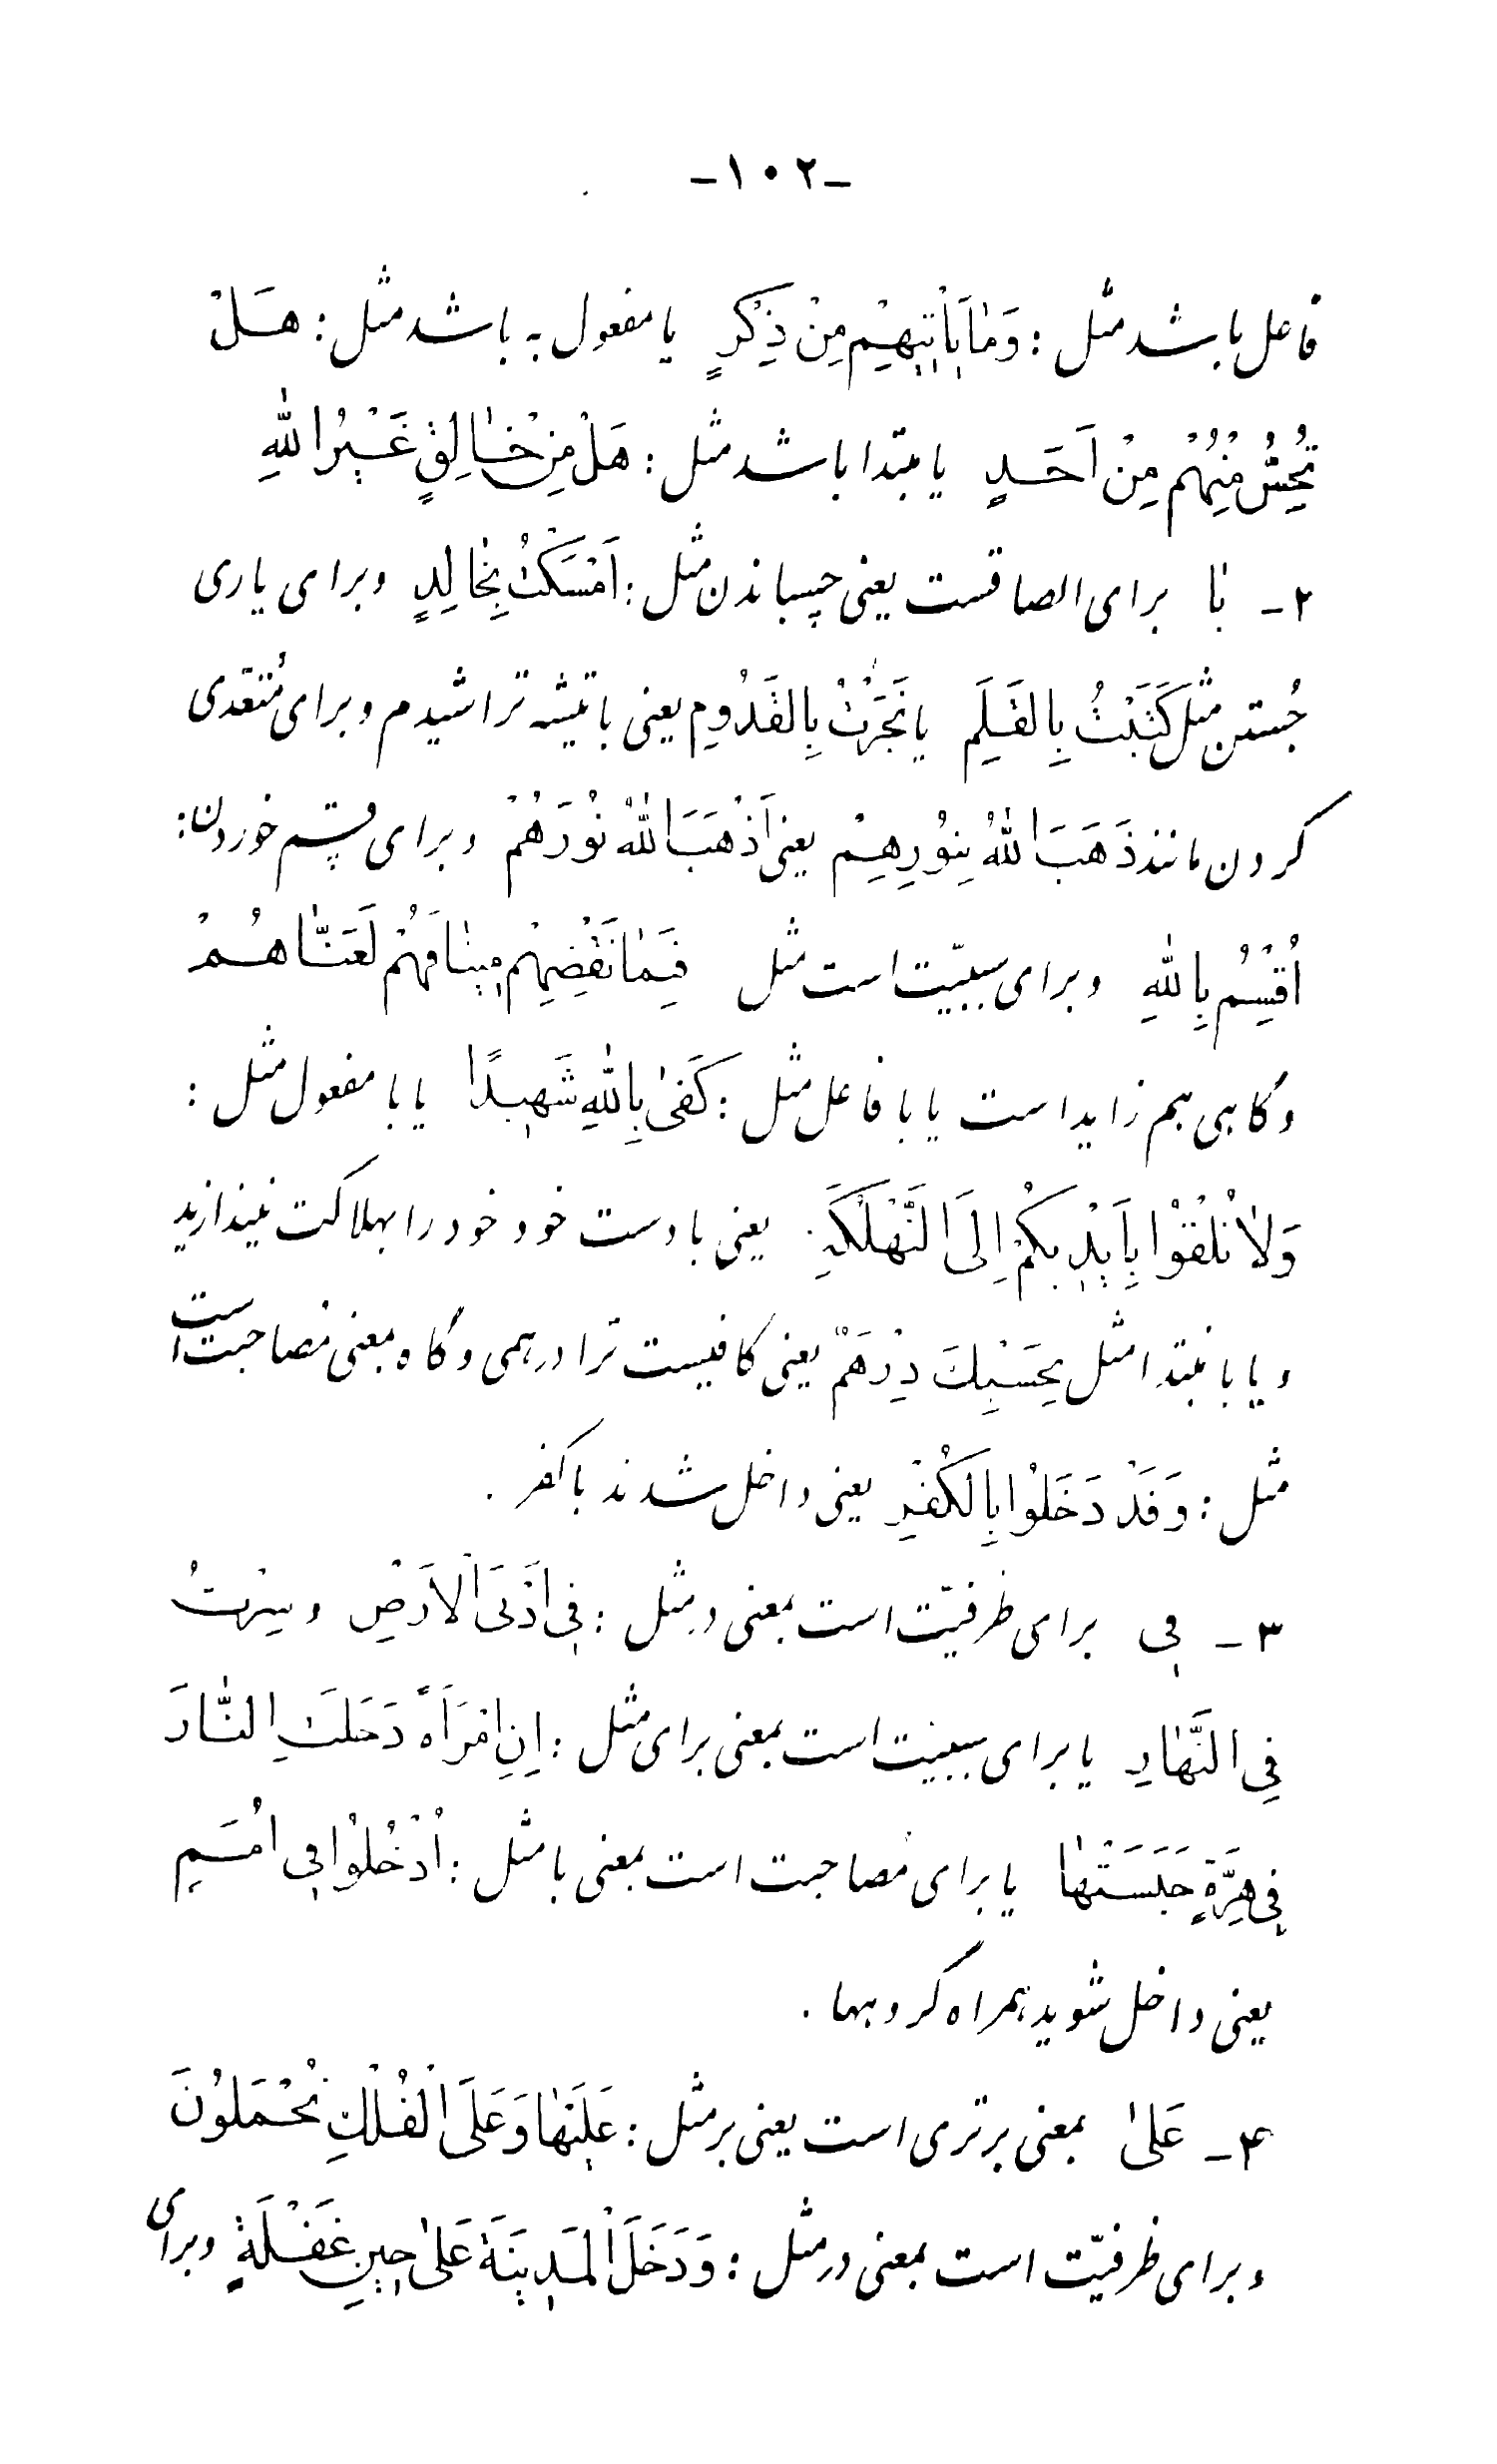 -۱۰۲-
فاعل باشد مثل : وَمٰا يَأْتيهِمْ مِنْ ذِكْرٍ يا مفعول به باشد مثل : هَلْ
تُحِسُّ مِنْهُمْ مِنْ اَحَدٍ يا مبتدا باشد مثل : هَلْ مِنْ خٰالِقٍ غَيْرُ اللّٰهِ
۲- بٰا برای الصاقست یعنی چسباندن مثل : اَمْسَكْتُ بِخٰالِدٍ وبرای یاری
جُستن مثل كَتَبْتُ بِالْقَلَمِ يا نَجَرْتُ بِالْقَدُومِ یعنی با تیشه تراشیدم وبرای مُتعدی
کردن مانند ذَهَبَ اللّٰهُ بِنُورِهِمْ یعنی اَذْهَبَ اللّٰهُ نُورَهُمْ وبرای قسم خوردن :
اُقْسِمُ بِاللّٰهِ وبرای سببیّت است مثل فَبِمٰا نَقْضِهِمْ ميثٰاقَهُمْ لَعَنّٰاهُمْ
وگاهی هم زاید است یا با فاعل مثل : كَفىٰ بِاللّٰهِ شَهيدًا یا با مفعول مثل :
وَلاٰ تُلْقُوْا بِاَيْديكُمْ اِلَى التَّهْلُكَةِ یعنی با دست خود خود را بهلاکت نیندازید
ویا با مبتدا مثل بِحَسْبِكَ دِرْهَمٌ یعنی کافیست ترا درهمی وگاه بمعنی مُصاحبت است
مثل : وَقَدْ دَخَلُوْا بِالْكُفْرِ یعنی داخل شدند با کفر .
۳- في برای ظرفیّت است بمعنی در مثل : في اَدْنَى الْاَرْضِ و سِرْتُ
فِي النَّهٰارِ یا برای سببیّت است بمعنی برای مثل : اِنِ امْرَأَةً دَخَلَتِ النّٰارَ
في هِرَّةٍ حَبَسَتْهٰا یا برای مُصاحبت است بمعنی با مثل : اُدْخُلُوْا في اُمَمٍ
یعنی داخل شوید همراه گروهها .
۴- عَلىٰ بمعنی برتری است یعنی بر مثل : عَلَيْهٰا وَعَلَى الْفُلْكِ تُحْمَلُونَ
وبرای ظرفیّت است بمعنی در مثل : وَدَخَلَ الْمَدينَةَ عَلىٰ حينِ غَفْلَةٍ وبرای